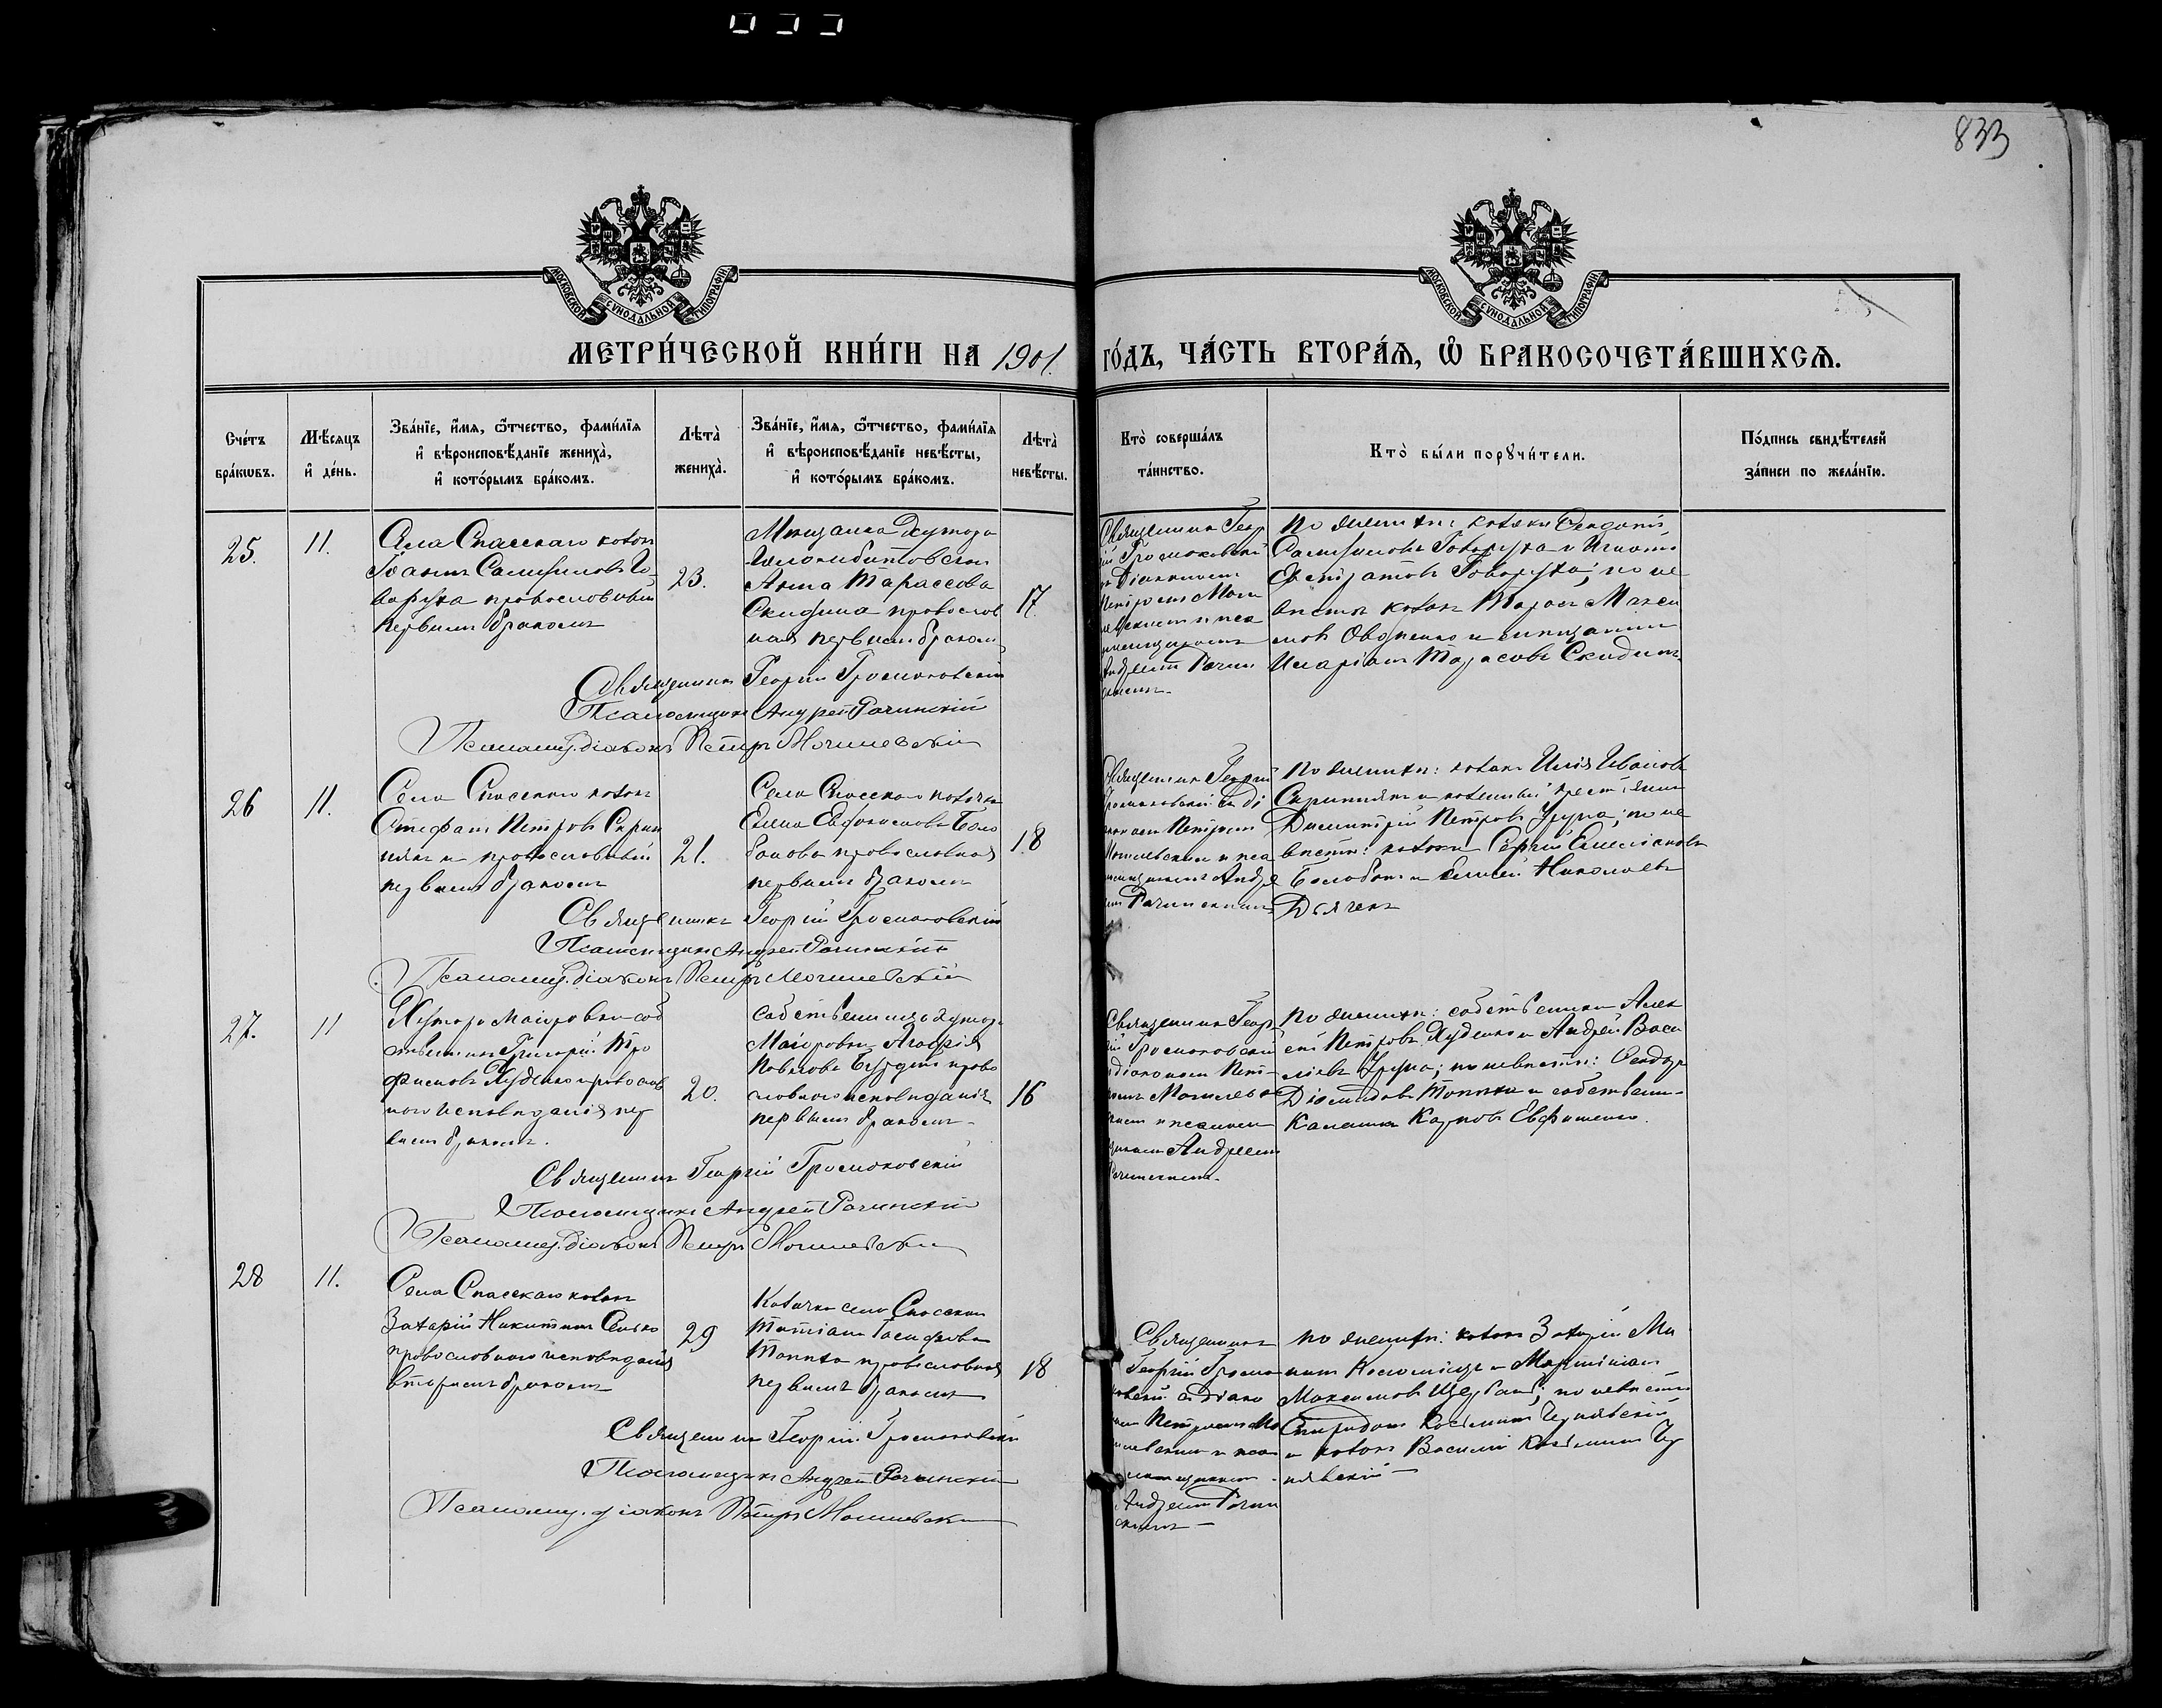 833
МОСКОВСКОЙ СѴНОДАЛЬНОЙ ТИПОГРАФІИ
МОСКОВСКОЙ СѴНОДАЛЬНОЙ ТИПОГРАФІИ
МЕТРИ́ЧЕСКОЙ КНИ́ГИ НА 1901 ГО́ДЪ, ЧА́СТЬ ВТОРА́Ѧ, Ѽ БРАКОСОЧЕТА́ВШИХСѦ.
Сче́тъ
бра́кѡвъ.
Мѣ́сяцъ
и҆ де́нь.
Зва́нїе, и҆́мя, ѻ҆́тчество, фами́лїя
и҆ вѣроисповѣ́данїе женихà,
и҆ кото́рымъ бра́комъ.
Лѣтà
женихà.
Зва́нїе, и҆́мя, ѻ҆́тчество, фами́лїя
и҆ вѣроисповѣ́данїе невѣ́сты,
и҆ кото́рымъ бра́комъ.
Лѣтà
невѣ́сты.
Ктò соверша́лъ
та́инство.
Ктò бы́ли порꙋчи́тели.
По́дпись свидѣ́телей
за́писи по жела́нїю.
25.
11.
Села Спасскаго козакъ
Іоаннъ Самуиловъ Го
воруха православный
первымъ бракомъ
23.
Мѣщанка Хутора
Анна Тарассова
Скидина православ
ная первымъ бракомъ
17
Священникъ Георг
ій Громоковскій
съ Діакономъ
Петромъ Моги
левскимъ и пса
ломщикомъ
Андреемъ Рачин
скимъ.
По женихѣ: козаки
Самуиловъ Говоруха и Игнатій
Говоруха; по не
вѣстѣ козакъ Тарасъ Макси
мовъ и мѣщанинъ
Иларіонъ Тарасовъ Скидинъ
Священникъ Георгій Громоковскій
Псаломщикъ Андрей Рачинскій
Псаломщ. діаконъ Петръ Могилевскій
26
11.
Села Спасскаго козакъ
Стефанъ Петровъ Скрип
някъ православный
первымъ бракомъ
21.
Села Спасскаго козачка
Елена Евфимова Бало
банова православная
первымъ бракомъ
18
Священникъ Георгій
Громоковскій съ Ді
акономъ Петромъ
Могилевскимъ и пса
ломщикомъ Андре
емъ Рачинскимъ
По женихѣ: козакъ Илія Ивановъ
Скрипнякъ и
Димитрій Петровъ Груша; по не
вѣстѣ: козаки Сергій Емеліановъ
Балобанъ и Николаевъ
Дьячекъ
Священникъ Георгій Громоковскій
Псаломщикъ Андрей Рачинскій
Псаломщ. діаконъ Петръ Могилевскій
27.
11
Хутора Маіоровки соб
ственникъ Григорій Тро
фимовъ Худенко православ
наго исповѣданія пер
вымъ бракомъ.
20.
Собственница хутора
Маіоровки Агафія
Павлова право
славнаго исповѣданія
первымъ бракомъ
16
Священникъ Георг
ій Громоковскій
съ діакономъ Пет
ромъ Могилевс
кимъ и псалом
щикомъ Андреемъ
Рачинскимъ.
По женихѣ: собственники Алек
сій Петровъ Худенко и Андрей Васи
ліевъ Груша; по невѣстѣ: Ѳеодоръ
Діомидовъ Топиха и собственн
Карповъ Евфименко.
Священникъ Георгій Громоковскій
Псаломщикъ Андрей Рачинскій
Псаломщ. діаконъ Петръ Могилевскій
28
11.
Села Спасскаго козакъ
Захарій Никитинъ Сенько
православнаго исповѣданія
вторымъ бракомъ
29
Козачка села Спасскаго
Татіана Іосифова
Топиха православная
первымъ бракомъ
18
Священникъ
Георгій Громо
ковскій съ діако
номъ Петромъ Мо
гилевскимъ и пса
ломщикомъ
Андреемъ Рачин
скимъ
По женихѣ: козаки Захарій Ми
и Мартиніанъ
Максимовъ Щербань; по невѣстѣ
Спиридонъ Косьминъ Чернявскій
и козакъ Василій Косьминъ Чер
нявскій
Священникъ Георгій Громоковскій
Псаломщикъ Андрей Рачинскій
Псаломщ. діаконъ Петръ Могилевскій